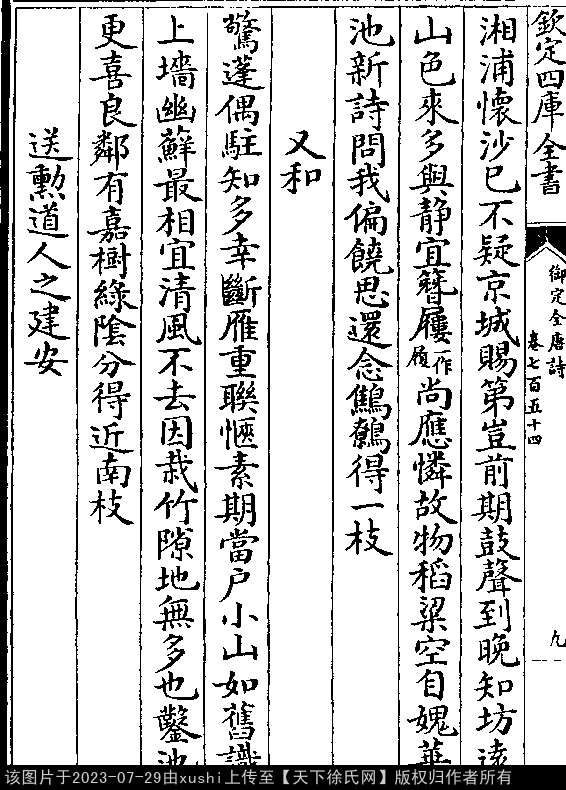 欽定四庫全書
御定全唐詩
卷七百五十四
九
湘浦懷沙已不疑京城賜第豈前期鼓聲到晚知坊遠
山色來多與静宜簪屨一作履尚應憐故物稻粱空自媿華
池新詩問我偏饒思還念鷦鷯得一枝
又和
驚蓬偶駐知多幸斷雁重聯愜素期當户小山如舊識
上墻幽蘚最相宜清風不去因栽竹隙地無多也鑿池
更喜良鄰有嘉樹緑陰分得近南枝
送勲道人之建安
该图片于2023-07-29由xushi上传至【天下徐氏网】版权归作者所有